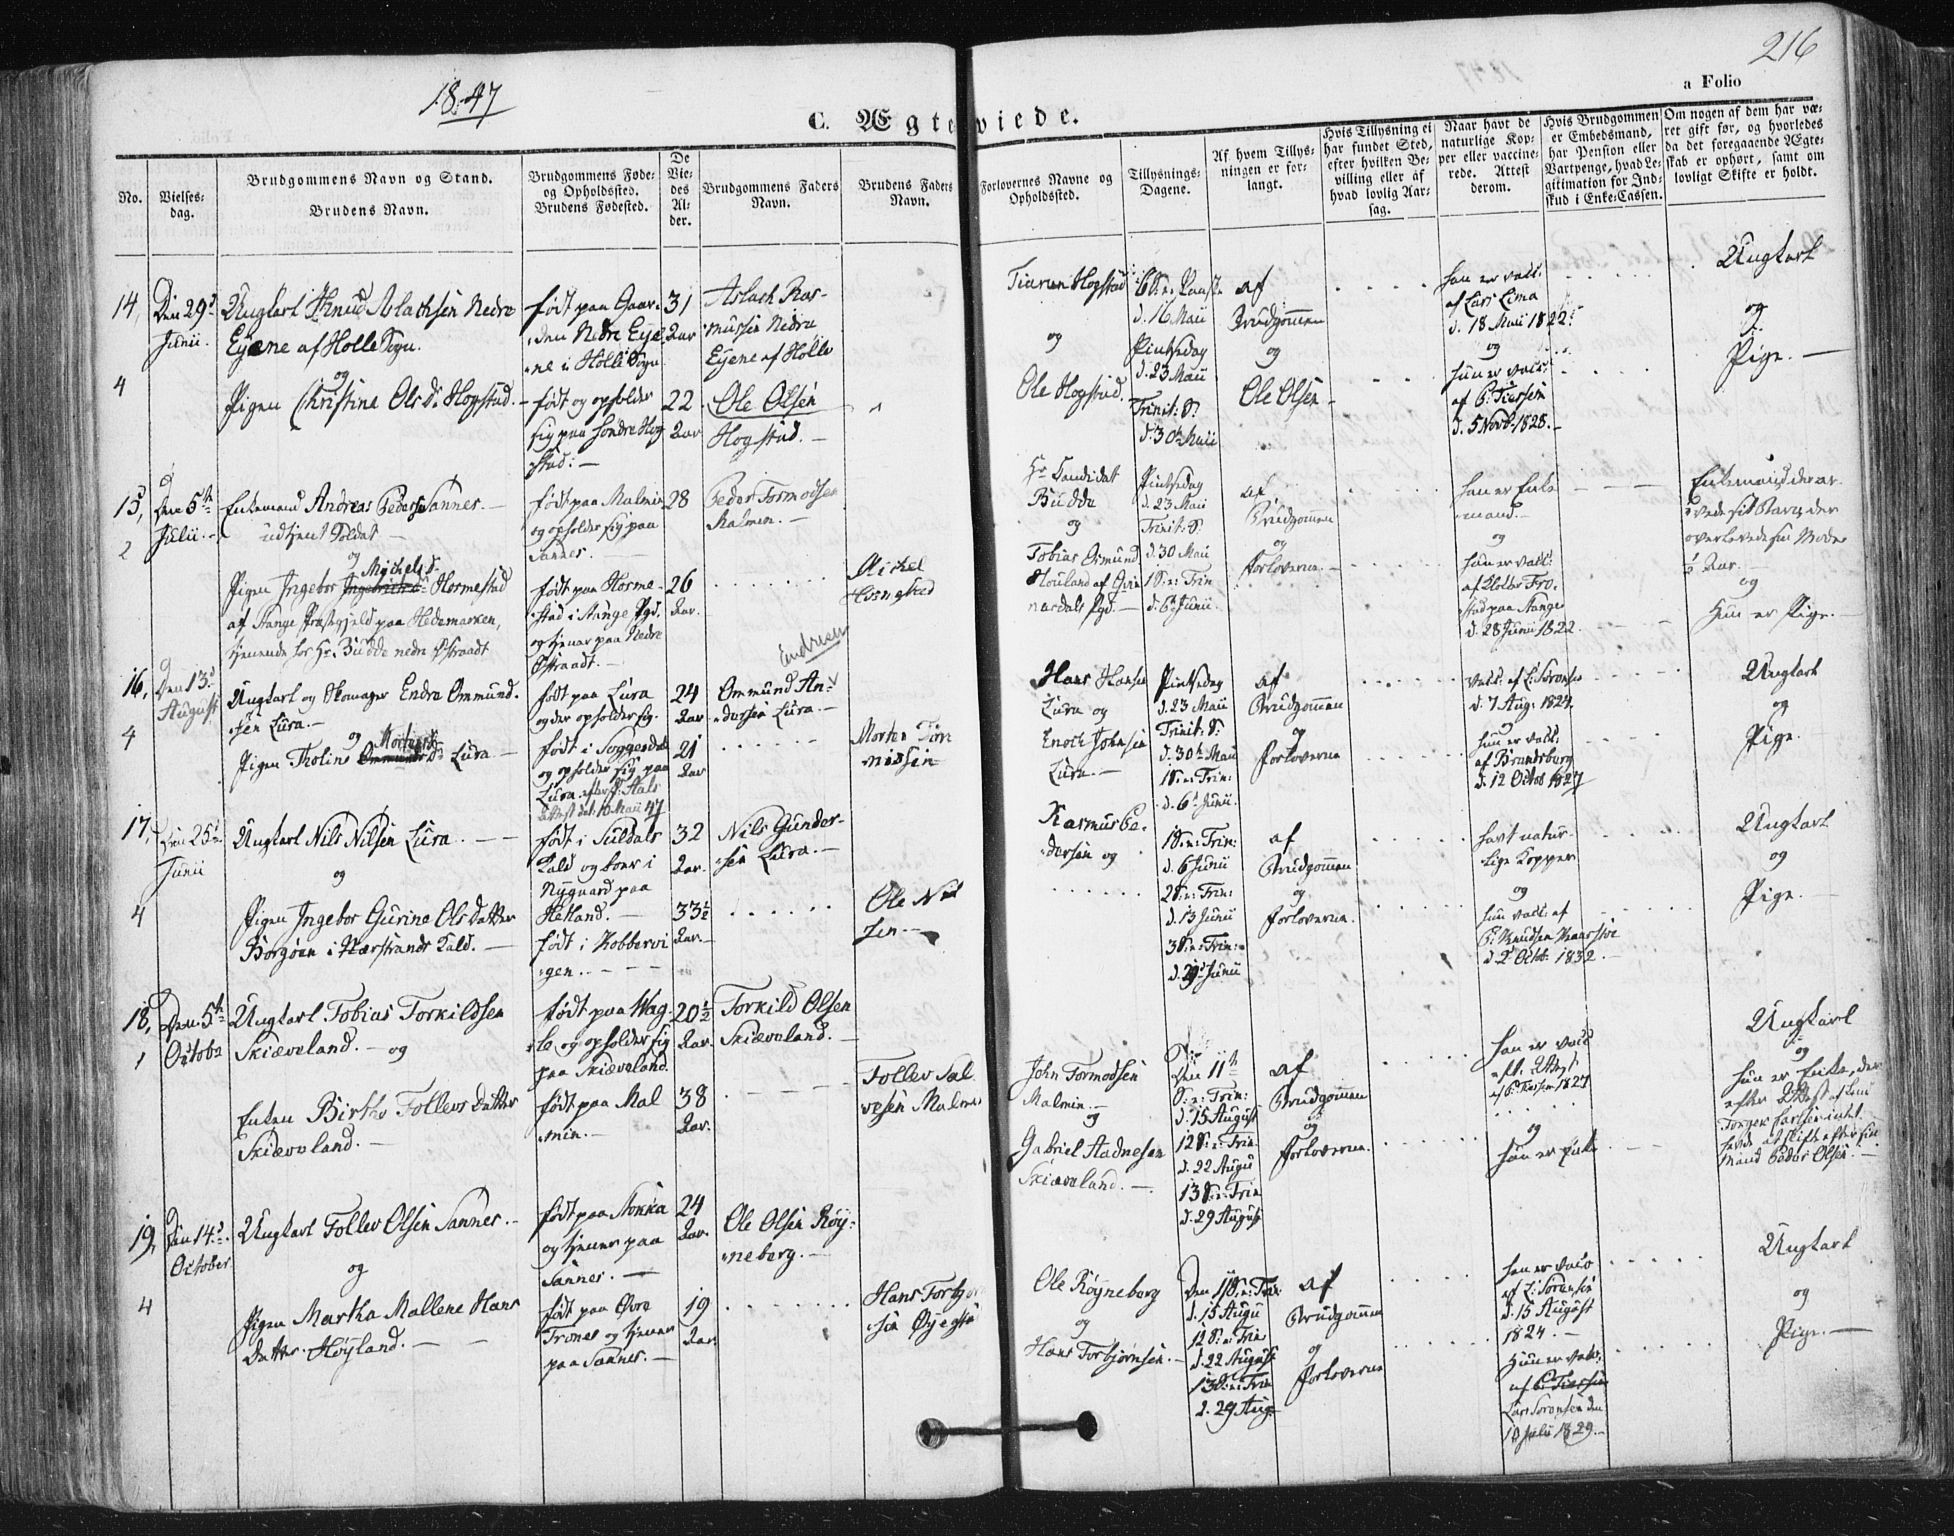 1847
216
a Folio
C. Ægteviede.
No.
Vielses-
dag.
Brudgommens Navn og Stand.
Brudens Navn.
Brudgommens Føde-
og Opholdssted.
Brudens Fødested.
De
Vie-
des
Al-
der.
Brudgommens Faders
Navn.
Brudens Faders
Navn.
Forlovernes Navne og
Opholdssted.
Tillysnings-
Dagene.
Af hvem Tillys-
ningen er for-
langt.
Hvis Tillysning ei
har fundet Sted,
efter hvilken Be-
villing eller af
hvad lovlig Aar-
sag.
Naar havt de
naturlige Kop-
per eller vaccine-
rede. Attest
derom.
Hvis Brudgommen
er Embedsmand,
har Pension eller
Vartpenge, hvad Le-
gitimation for Ind-
skud i Enke-Cassen.
Om nogen af dem har væ-
ret gift før, og hvorledes
da det foregaaende Ægte-
skab er ophørt, samt om
lovligt Skifte er holdt.
14,
Den 29d
Junii.
4
Ungkarl Knud Aslachsen Nedre
Eyene af Holle Sogn.
og
Pigen Christine Olsd. Hogstad.
født paa Gaar-
den Nedre Eye-
ne i Holle Sogn
født og opholder
sig paa søndre Hog
stad: —
31
Aar
22
Aar
Aslach Ras-
mussen Nedre
Eyene af Holle
Ole Olsen
Hogstad. —
Hogstad
og
Ole Hogstad.
6 S. e. Paaske
d. 16 Maii
Pintsedag
d. 23 Maii
Trinit: S.
d. 30te Maii
af
Brudgommen
og
Ole Olsen —
han er vacc:
af Lars Lima
d. 18 Maii 1822
og
hun er vacc:
af
d. 5 Novb. 1828. —
Ungkarl
og
Pige. —
15,
Den 5te
Julii. —
2
Enkemand Andreas Pedersen Sannes. —
udtjent Soldat —
og
Michelsd.
Pigen Ingebor Ingebrichtsd. Hormestad
af Stange Præstegjeld paa Hedemarken,
tjenende hos Hr. Budde nedre Østraadt
født paa Malmin
og opholder sig paa
Sannes. —
født paa Horme-
stad i Stange Pgd.
og tjener paa Nedre
Østraadt. —
28
26
Aar.
Peder Tormodsen
Malmen. —
Michel
Hr. Candidat
Budde
og
Tobias Osmund
Pgd. —
Pintsedag
d. 23 Maii
Trinit: S.
d. 30 Maii
1 S. e. Trin
d. 6te Junii.
af
Brudgommen
og
Forloverne. —
han er Enke
mand. —
og
hun er vacc:
stad paa Stange
d. 28 Junii 1822.
og
Hun er Pige. —
16,
Den 13d
August
4
Ungkarl og Skomager Endre Ommund.
sen Lura. —
og
Mortensd.
Pigen Tholine Ommundsd. Lura —
født paa Lura
og der opholder sig.
født i Soggendal
og opholder sig paa
Lura
Attest dat: 10 Maii 47
24
Aar
21
Aar
Endresen
Ommund An-
dersen Lura. —
Morten Tøn
nissen
Hans Hansen
Lura og
Enoch Johnsen
Lura. —
Pintsedag
d. 23 Maii
Trinit: S:
d. 30te Maii
1 S. e. Trin:
d. 6te Junii.
af
Brudgommen
og
Forloverne
vacc: af L. Sørensen
d. 7 Aug: 1824.
og
hun er vacc:
af
d. 12 Octob 1827
Ungkarl
og
Pige.
17,
Den 25de
Junii
4
Ungkarl Nils Nilsen Lura. —
og
Pigen Ingebor Gurine Olsdatter
Borgøen i Nærstrands Kald. —
født i Suldals
Kald og boer i
Nygaard paa
Hetland. —
født i Kobbervi
gen. —
32
Aar.
33½
Aar. —
Nils Gunder-
sen Lura. —
Ole Nil
sen. —
Rasmus Pe-
dersen og
1 S. e. Trin:
d. 6 Junii
2 S. e. Trin:
d. 13 Junii
3 S. e. Trin:
Junii
af
Brudgommen
og
Forloverne.
havt natur-
lige Kopper
og
hun vacc: af
Knudsen
d. 2 Octob: 1832. —
Ungkarl
og
Pige. —
18,
Den 5te
Octobr
1
Ungkarl Tobias Torkildsen
Skiæveland. — og
Enken Birthe Tollevsdatter
Skiæveland. —
født paa Wag-
le og opholder sig
paa Skiæveland.
født paa Mal
min. —
20½
Aar.
38
Aar.
Torkild Olsen
Skiæveland. —
Tollev Sal
vesen Malmin
John Tormodsen
Malmin. —
og
Gabriel Aadnesen
Skiæveland. —
Den 11te
S. e: Trin:
d. 15 August
12 S. e: Trin
d. 22 Augu
13 S. e: Trin
d. 29 August
af
Brudgommen
og
Forloverne.
han er vacc
1827
og
hun er Enke
Ungkarl
og
hun er Enke, der
efter Attest af
intet
havde at skifte efter sin
Mand Peder Olsen. —
19,
Den 14d
October
4
Ungkarl Tollev Olsen Sannes. —
og
Pigen Martha Mallene Hans
datter Høyland. —
født paa Stokka
og tjener paa
Sannes. —
født paa Øvre
Trones og tjener
paa Sannes. —
24
Aar.
19
Aar.
Ole Olsen Røy-
neberg. —
Hans Torbjørn
sen
Ole Røyneberg
og
Hans Torbjørnsen. —
Den 11 S. e: Trin
d. 15 Augu
12 S. e. Trin
d. 22 August
13 S. e: Trin
d. 29 Aug.
af
Brudgommen
og
Forloverne
han er vacc
af L. Sørensen
d. 15 August
1824. —
Hun er vacc:
af
Lars Sørensen den
1829. —
Ungkarl
og
Pige. —